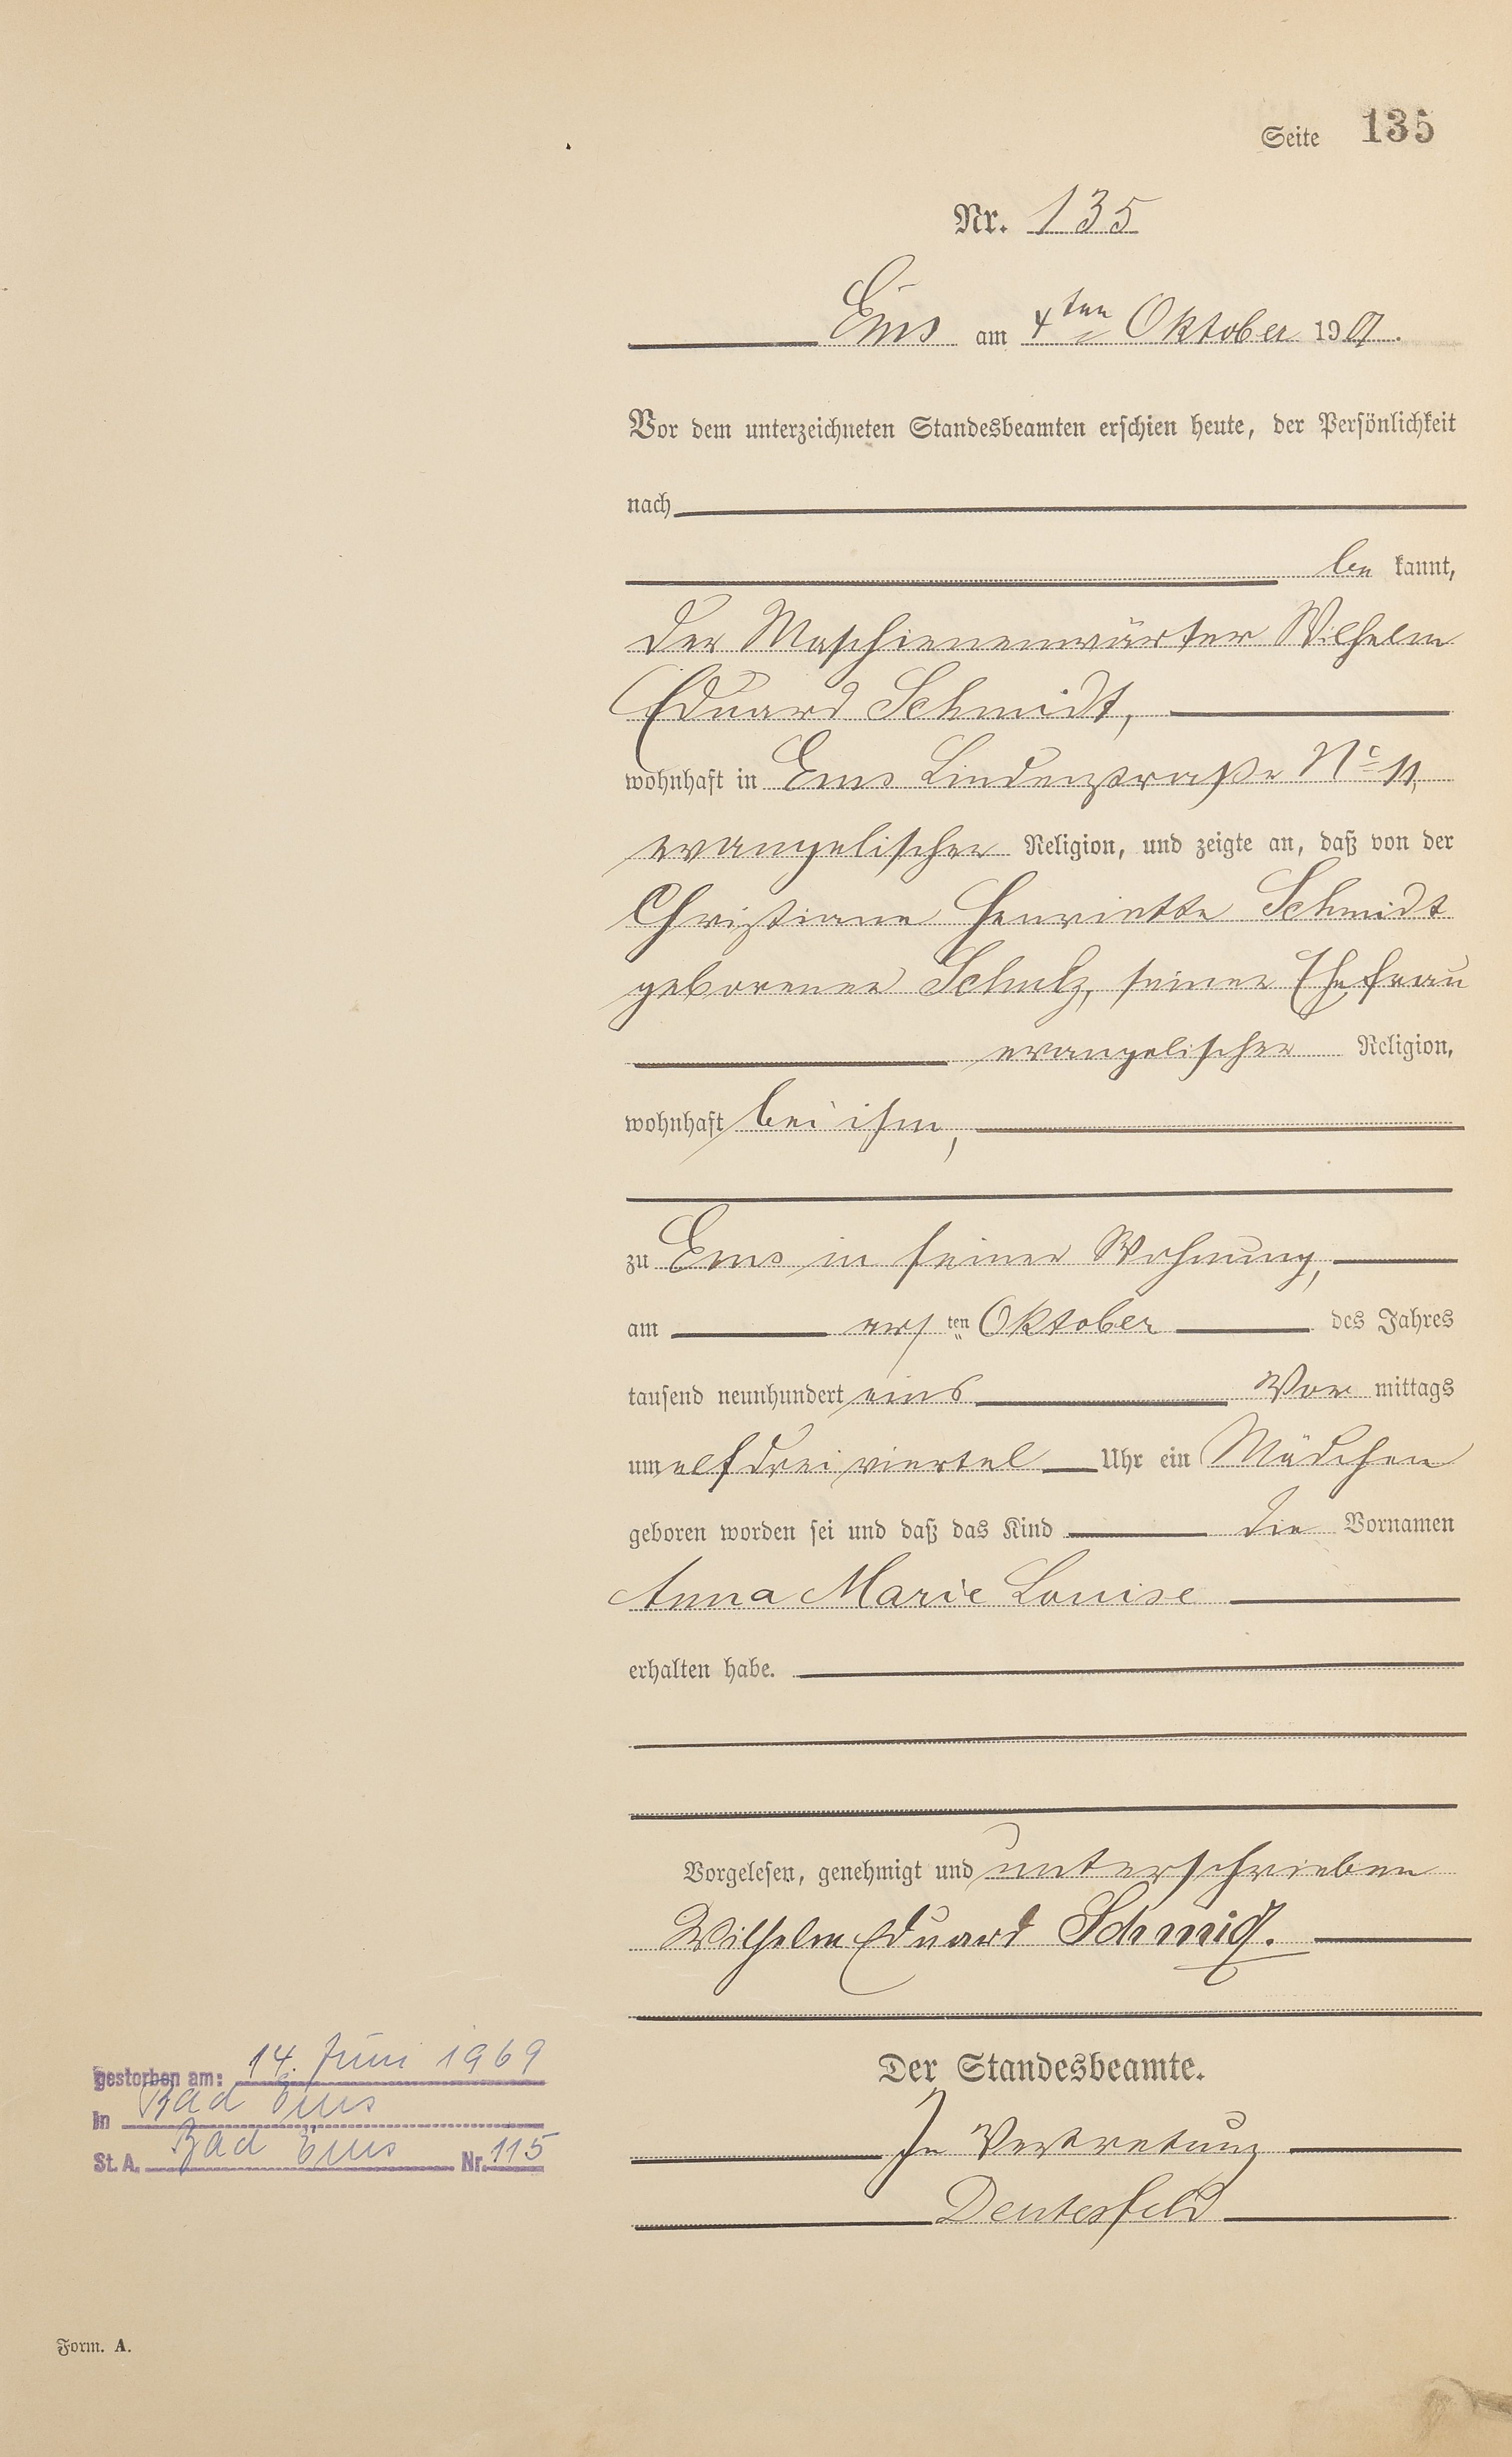 Seite 135
Nr. 135
Ems am 4ten Oktober 1901.
Vor dem unterzeichneten Standesbeamten erschien heute, der Persönlichkeit
nach
be kannt,
der Maschienenwärter Wilhelm
Eduard Schmidt,
wohnhaft in Ems Lindenstraße No 11,
evangelischer Religion, und zeigte an, daß von der
Christiane Henriette Schmidt
geborenen Schulz, seiner Ehefrau
evangelischer Religion,
wohnhaft bei ihm,
zu Ems in seiner Wohnung,
am ersten Oktober des Jahres
tausend neunhundert eins Vor mittags
um elf dreiviertel Uhr ein Mädchen
geboren worden sei und daß das Kind die Vornamen
Anna Marie Louise
erhalten habe.
Vorgelesen, genehmigt und unterschrieben
Wilhelm Eduard Schmidt.
Der Standesbeamte.
In Vertretung
gestorben am: 14. Juni 1969
in Bad Ems
St. A. Bad Ems Nr. 115
Form. A.